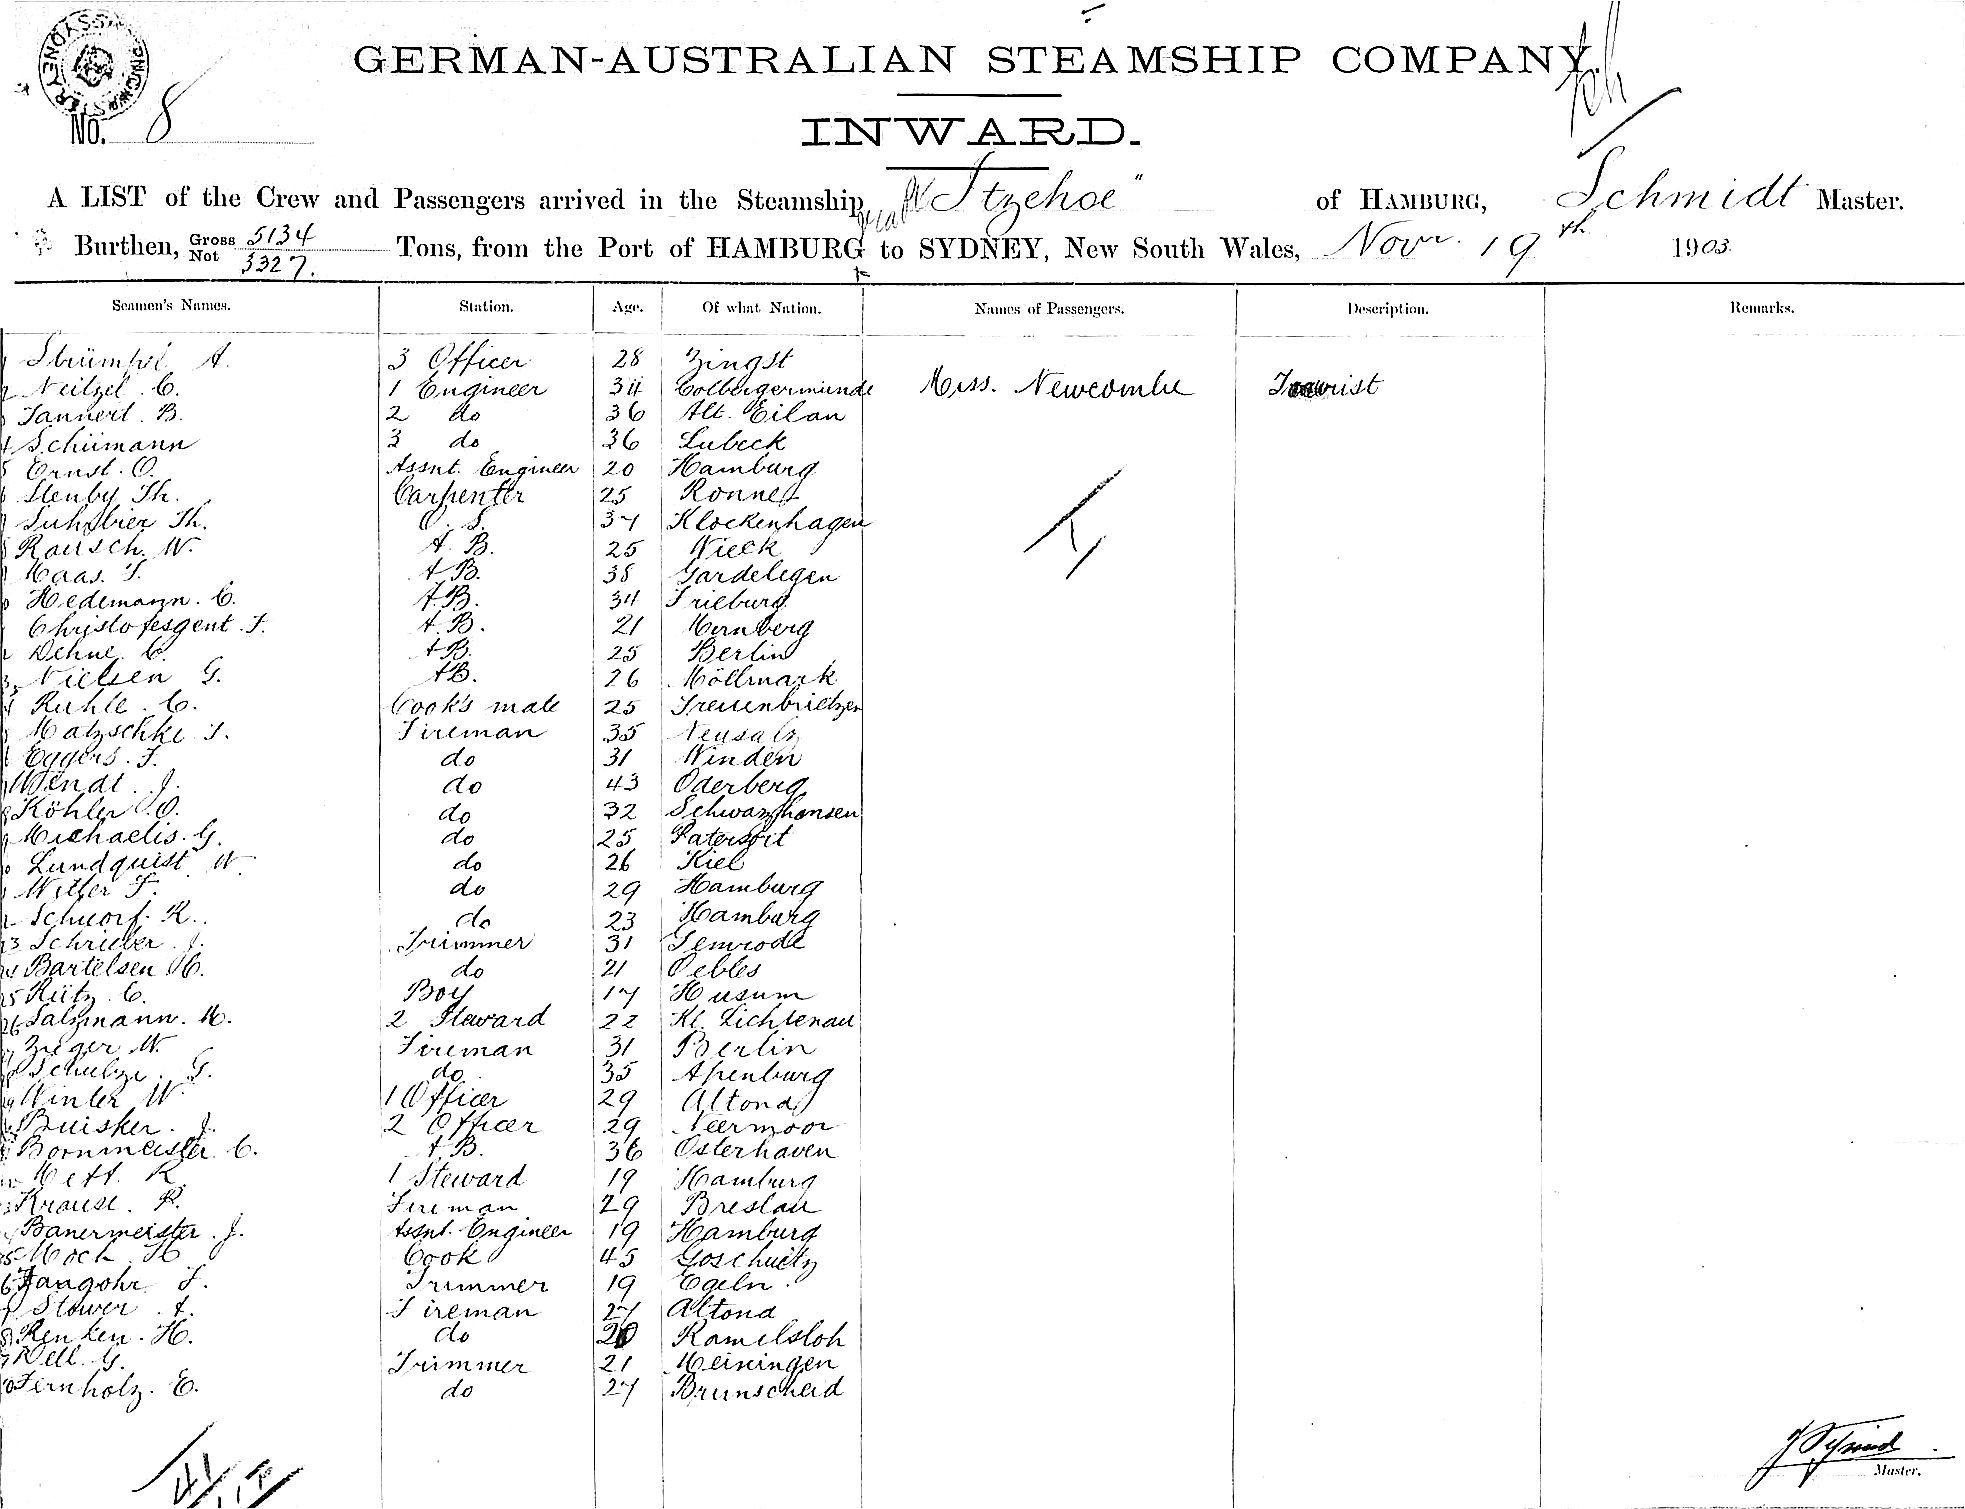 SHIPPING MASTER SYDNEY
GERMAN-AUSTRALIAN STEAMSHIP COMPANY.
No. 8
INWARD.
A LIST of the Crew and Passengers arrived in the Steamship "Itzehoe" of HAMBURG, Schmidt Master.
Burthen, Gross 5134 Not 3327. Tons, from the Port of HAMBURG to SYDNEY, New South Wales, Novr. 19th 1903.
Seamen's Names. Station. Age. Of what Nation. Names of Passengers. Description. Remarks.
Strümpel A. 3 Officer 28 Zingst
Neitzel. C. 1 Engineer 34 Colbergermünde Miss. Newcombe Tourist
Tannert. B. 2 do 36 Alt. Eilan
Schümann 3 do 36 Lubeck
Ernst. O. Assnt. Engineer 20 Hamburg
Stenby Th. Carpenter 25 Ronne
Suhrbier Th. O. S. 37 Klockenhagen
Rausch. W. A. B. 25 Wieck
Maas. A B. 38 Gardelegen
Hedemann. C. A. B. 34 Frieburg
Christofesgent. F. A. B. 21
Dehne. C. A B. 25 Berlin
Nielsen G. AB. 26 Möllmark
Ruhle. C. Cook's mate 25 Treuenbrietzen
Matzschke Fireman 35 Neusalz
Eggers. F. do 31 Winden
Wendt. J. do 43 Oderberg
Köhler. O. do 32 Schwarzhansen
Michaelis. G. do 25
Lundquist. W do 26 Kiel
F. do 29 Hamburg
R. do 23 Hamburg
23 Schrieber. J. Trimmer 31 Gemrode
24 Bartelsen H. do 21 Oebles
25 Rütz. C. Boy 17 Husum
26 Salzmann. M. 2 Steward 22 Kl. Lichtenau
Zieger W. Fireman 31 Berlin
Schulze. G. do 35 Apenburg
Winter W. 1 Officer 29 Altona
Buisker. J. 2 Officer 29 Neermoor
Bornmeister C. A. B. 36 Osterhaven
Mett. R. 1 Steward 19 Hamburg
Krause. R. Fireman 29 Breslau
Banermeister. J. Assnt. Engineer 19 Hamburg
35 Moch. H Cook 45 Goschuetz
36 Jangohr F. Trimmer 19 Egeln.
Stower. A. Fireman 27 Altona
Renken. H. do 20 Ramelsloh
Dell. G. Trimmer 21 Meiningen
Fernholz. E. do 27 Brunscheid
Master.